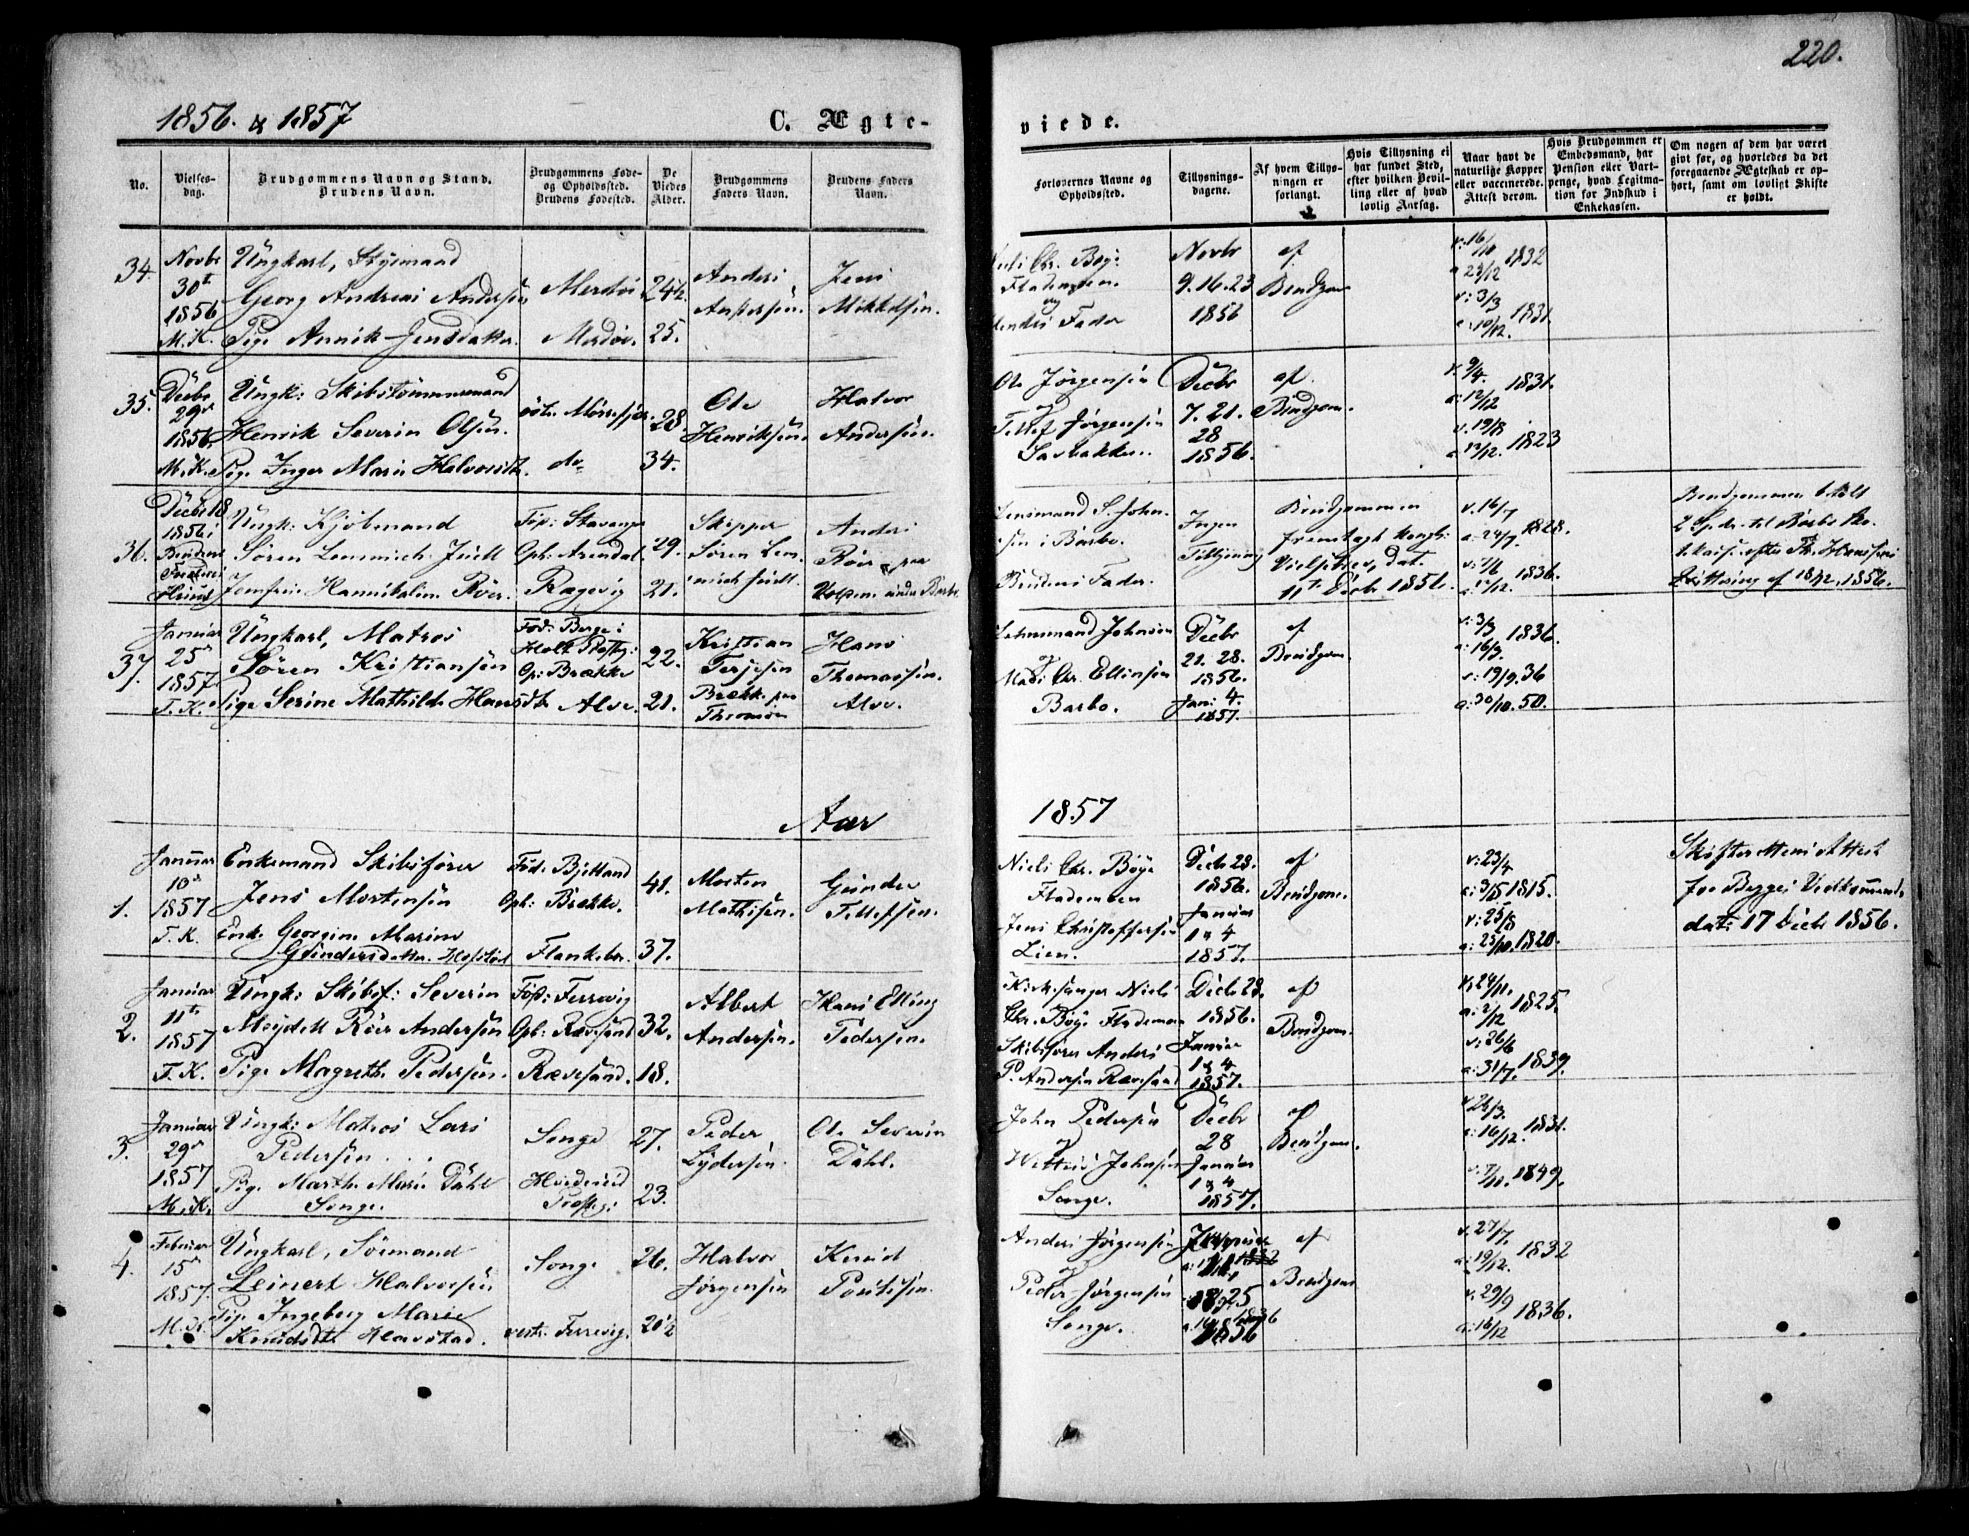 220.
1856. & 1857
C. Ægte-
viede.
No.
Vielses-
dag.
Brudgommens Navn og Stand.
Brudens Navn.
Brudgommens Føde-
og Opholdssted.
Brudens Fødested.
De
Viedes
Alder.
Brudgommens
Faders Navn.
Brudens Faders
Navn.
Forlovernes Navne og
Opholdssted.
Tillysnings-
dagene.
Af hvem Tillys-
ningen er
forlangt.
Hvis Tillysning ei
har fundet Sted,
efter hvilken Bevil-
ling eller af hvad
lovlig Aarsag.
Naar havt de
naturlige Kopper
eller vaccinerede.
Attest derom.
Hvis Brudgommen er
Embedsmand, har
Pension eller Vart-
penge, hvad Legitma-
tion for Indskud i
Enkekassen.
Om nogen af dem har været
givt før, og hvorledes da det
foregaaende Ægteskab er op-
hørt, samt om lovligt Skifte
er holdt.
34.
Novbr
30te
1856
M. K.
Ungkarl, Styrmand
Georg Andreas Andersen
Pige Annik Jensdatter.
Merdøe
Merdøe.
24½
25.
Anders
Andersen.
Jens
Mikkelsen.
Niels Chr. Bøye
Fladenssen.
og
Brudens Fader
Novbr
9. 16. 23
1856
af
Brudgom.
v: 16/10
a 23/12 1832
v: 3/3
a: 10/12. 1831.
35.
Decbr
29de
1856.
M. K.
Ungk: Skibstømmermand
Henrik Severin Olsen.
Pige Inger Marie Halvorsdt.
østre Mørefjær.
do
28.
34.
Ole
Henriksen.
Halvor
Andersen.
Ole Jørgensen
og
Tellef Jørgensen
Decbr
7. 21.
28
1856.
af.
Brudgom.
v. 9/4.
a: 12/12 1831.
v. 19/8
a 13/12. 1823
36.
Decbr 18
1856 i
Brudens
Faders
Huus
Ungk: Kjøbmand
Søren Lemmich Juell
Jomfrue Hannikaline Röer.
Föd: Stavanger
Oph: Arendal.
Ragevig
29.
21.
Skipper
Søren Lem-
mich Juell.
Anders
Röer paa
under Barbo
Lensmand S. John-
sen i Barbo.
Brudens Fader.
Ingen
Tillysning
Brudgommen
fremlagt kongl:
Vielsesbrev, dat.
11te Decbr 1851.
v. 16/7
a: 24/7 1828.
v: 7/6 1836.
a: 17/12.
Brudgommen betalt
2 Spd. til Barbo
1856.
37.
Januar
25de
1857.
T. K.
Ungkarl, Matros
Søren Kristiansen
Pige Serine Mathilde Hansdt.
Föd: Berge i
Holt Præstg:
Op: Brække
Alve.
22.
21.
Kristian
Terjesen
Brække paa
Thromøe
Hans
Thomassen.
Alve.
Lehnsmand Johnsen
og
Mads Chr. Ellingsen
Barbo.
Decbr
21. 28.
1856.
Jan: 4.
1857.
af
Brudgom.
v: 3/3 1836.
a: 16/9.
v: 19/9. 36
a: 30/10. 50.
Aar
1857
1.
Januar
10de
1857
T. K.
Enkemand Skibsfører
Jens Mortensen
Enke Georgine Marine
Gundersdatter Hofstød
Föd: Bjelland
Oph: Brække.
Flankeber.
41.
37.
Morten
Mathisen.
Gunder
Tellefsen.
Niels Chr. Bøye
Fladensen
Jens Christoffersen
Lien.
Decbr 28.
1856.
Januar
1 & 4
1857.
af
Brudgom.
v: 23/4
a: 3/5 1815.
v: 25/8
a: 25/10. 1820.
Skifterettens Attest
for Begges Vedkommende
dat: 17 Decbr 1856.
2.
Januar
11te
1857
T. K.
Ungk: Skibsf: Severin
Meydell Röer Andersen
Pige Magrethe Pedersen.
Föd: Ferrevig
Oph: Rævesand.
Rævesand.
32.
18.
Albert
Andersen.
Hans Elling
Pedersen.
Kirkesanger Niels
Chr. Bøye Fladensen
Skibsfører Anders
P. Andersen Rævesand
Decbr 28.
1856.
Januar
1 & 4
1857.
af
Brudgom.
v. 24/11.
a: 2/12 1825.
v: 26/6
a: 31/7. 1839.
3.
Januar
29de
1857
M. K.
Ungk: Matros Lars
Pedersen
Pige Marthe Marie Dahl
Songe.
Songe
Hvideseid
Præstg:
27.
23.
Peder
Lydersen.
Ole Severin
Dahl.
John Pedersen
og
Johnsen
Songe.
Decbr
28
Januar
1 & 4
1857.
af
Brudgom.
v. 26/3.
a: 16/12. 1831.
v. 7/11. 1849.
4.
Februar
15de
1857.
M. K.
Ungkarl, Sømand
Leinert Halvorsen
Pige Ingeborg Marie
Knudsdt. Havstad.
Songe
vestre Ferrevig.
26.
20½
Halvor
Jørgensen
Knud
Pontesen.
Anders Jørgensen
og
Peder Jørgensen
Songe.
Januar
af
Brudgom
v. 27/7.
a: 19/12. 1832
v. 29/9
a: 16/12 1836.